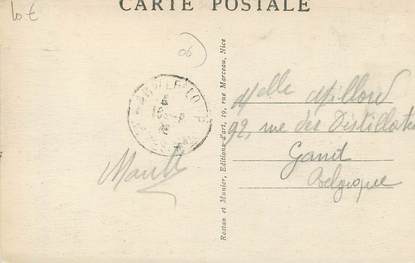 CARTE POSTALE
10 €
06
Rostan et Munier, Editions d'art, 19, rue Marceau, Nice
Melle Millou
92, rue des Distillates
Gand
Belgique